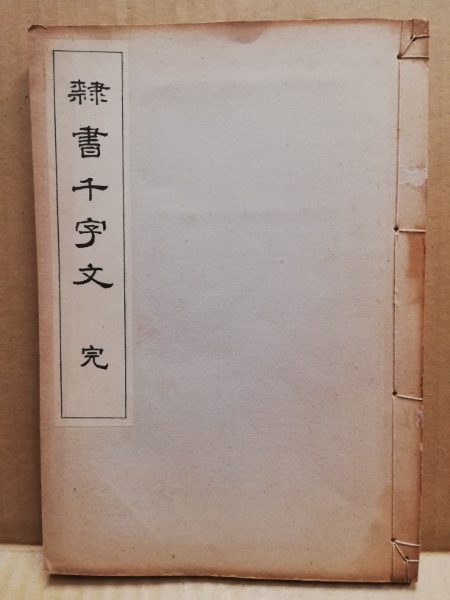 隸書千字文 完